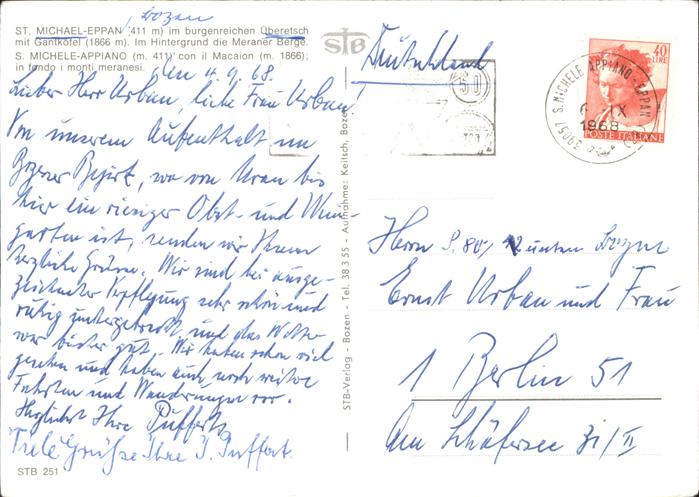 Bozen
ST. MICHAEL-EPPAN (411 m) im burgenreichen Überetsch
mit Gantkofel (1866 m). Im Hintergrund die Meraner Berge.
S. MICHELE-APPIANO (m. 411) con il Macaion (m. 1866);
in fondo i monti meranesi.
den 4.9.68.
Lieber Herr Urban, liebe Frau Urban!
Von unserem Aufenthalt im
Bozener Bezirk, wo von Meran bis
hier ein riesiger Obst- und Wein-
garten ist, senden wir Ihnen
herzliche Grüsse. Wir sind bei ausge-
zeichneter Verpflegung sehr schön und
ruhig untergebracht und das Wetter
war bisher gut. Wir haben schon viel
gesehen und haben auch noch weitere
Fahrten und Wanderungen vor.
Herzlichst Ihre Pufferts
Viele Grüße Ihre J. Puffert.
STB 251
STB-Verlag - Bozen - Tel. 38 3 55 - Aufnahme: Keitsch, Bozen
STB
Deutschland
40
LIRE
POSTE ITALIANE
39057 S. MICHELE APPIANO-EPPAN
IX
1968
Herrn
Ernst Urban und Frau
1 Berlin 51
Am Schäfersee